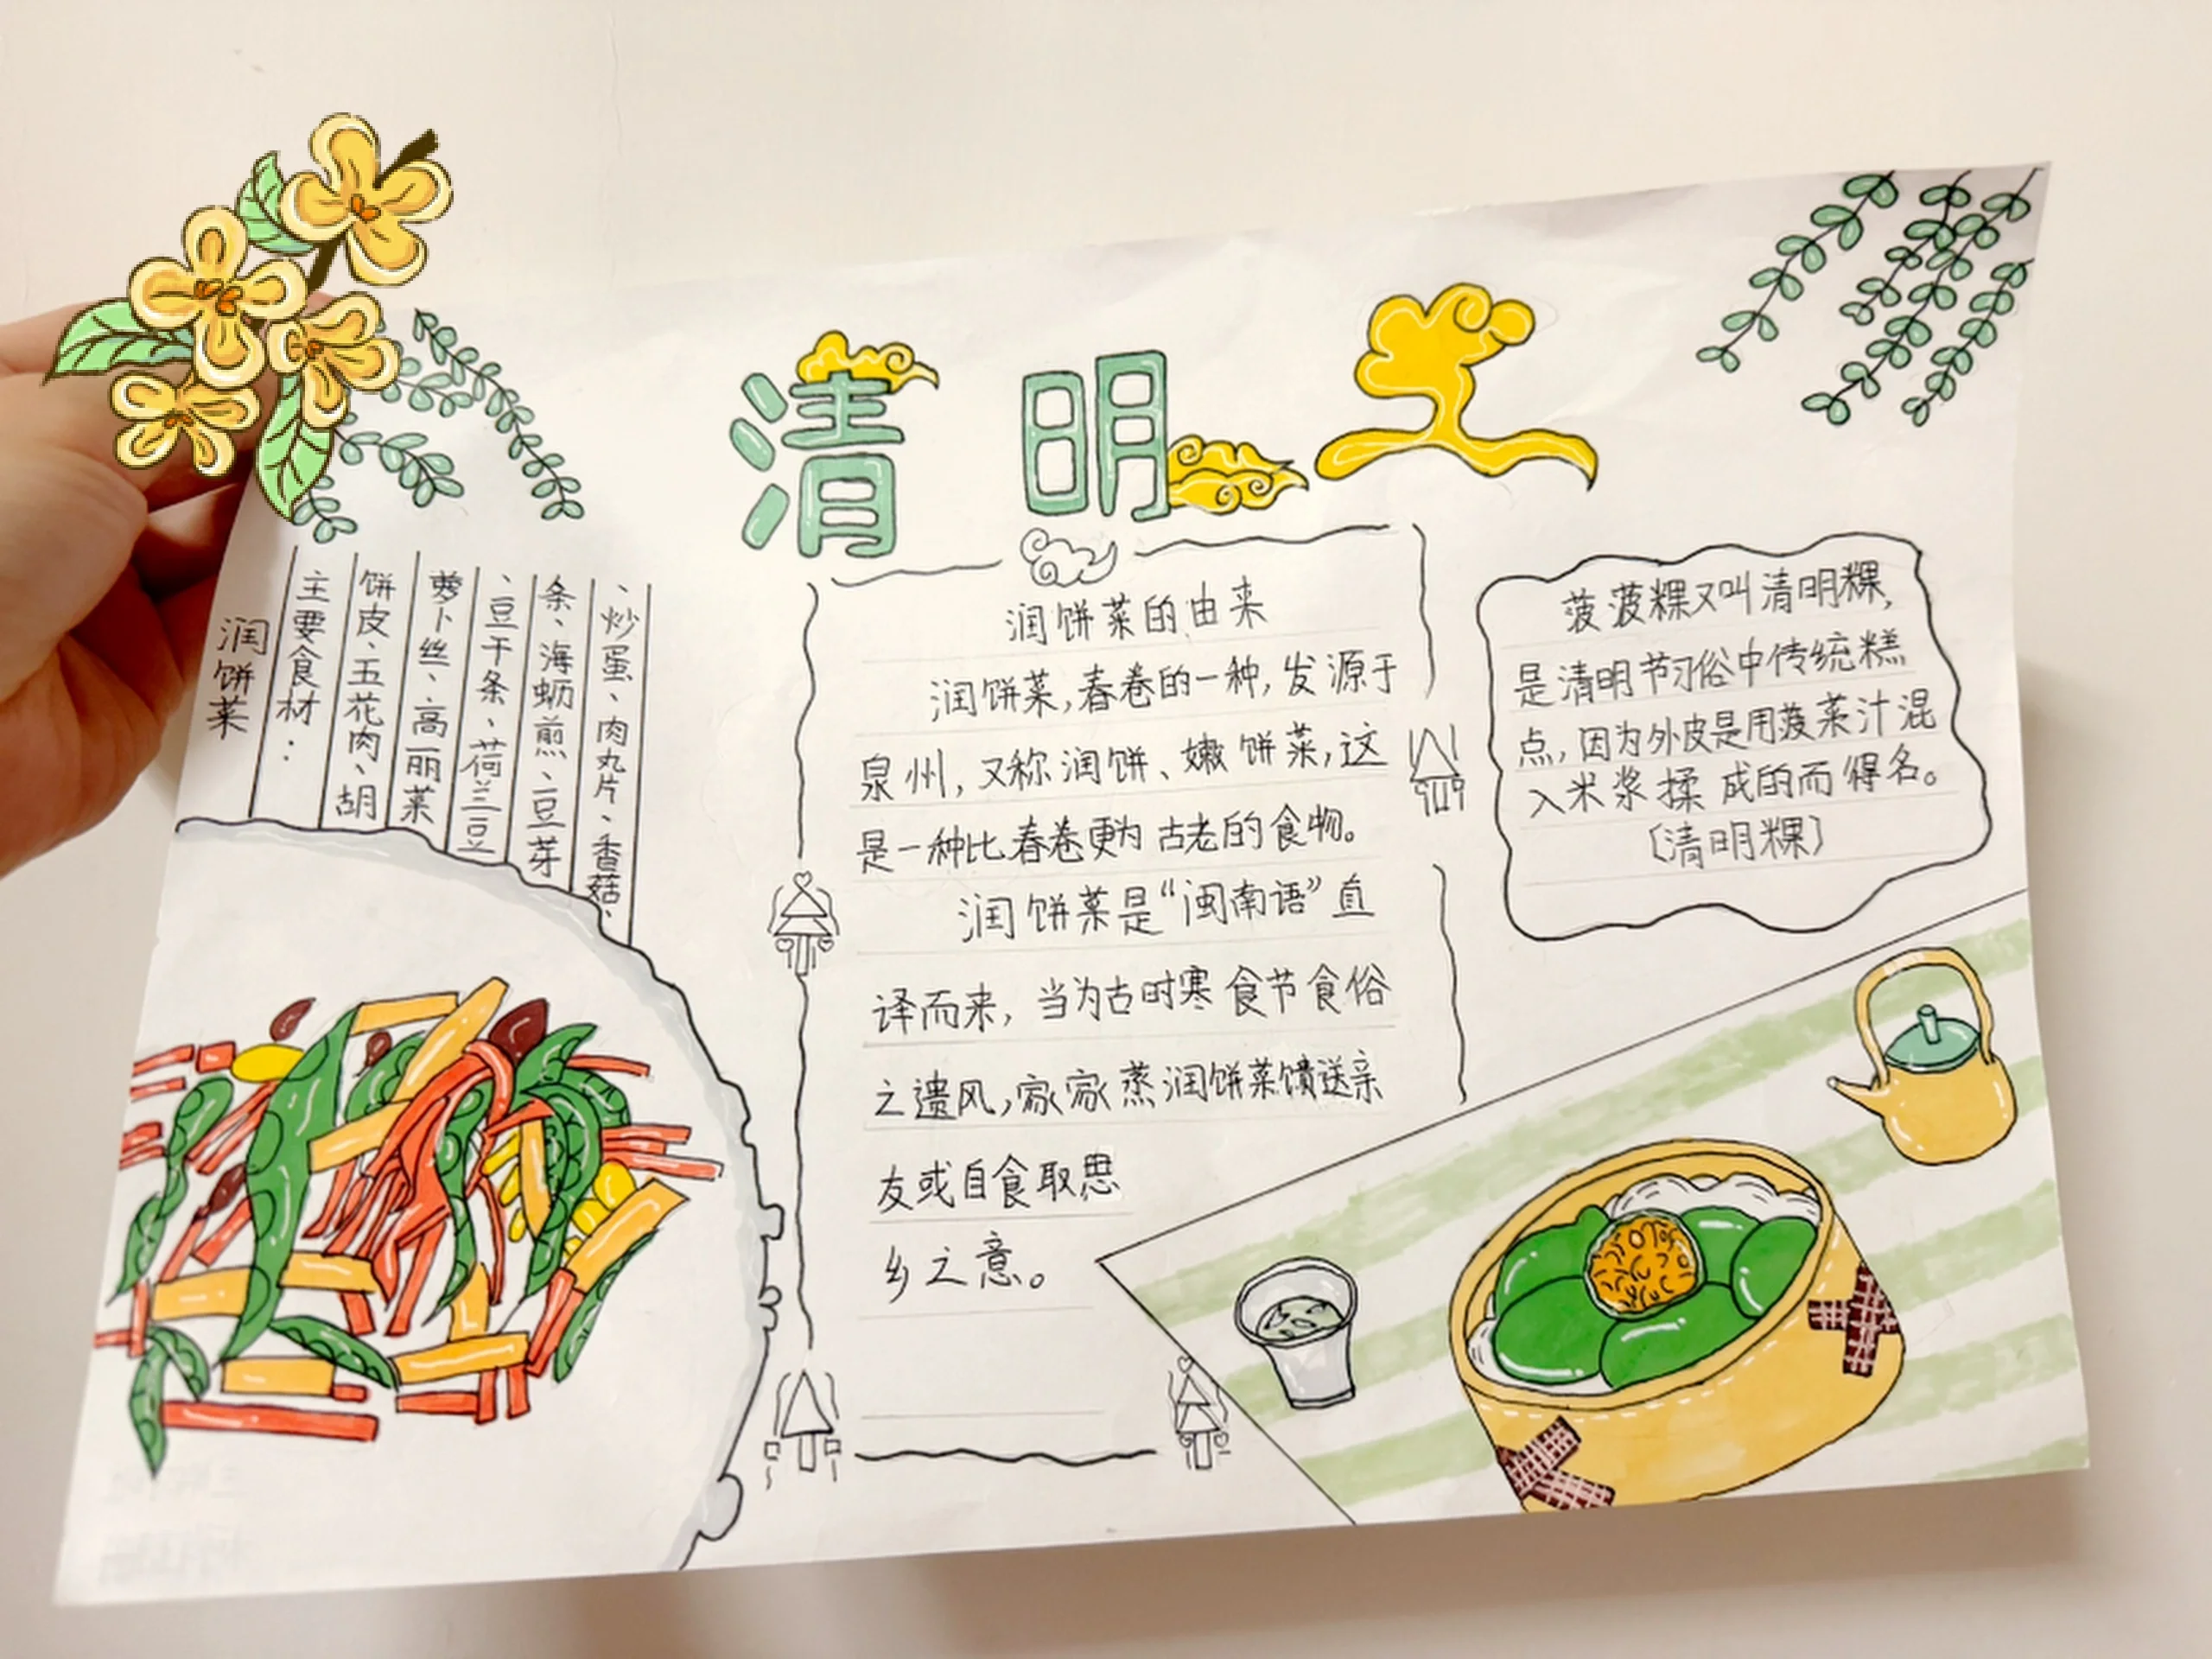 清明
润饼菜
主要食材：
饼皮、五花肉、胡
萝卜丝、高丽菜
、豆干条、荷兰豆
条、海蛎煎、豆芽
、炒蛋、肉丸片、香菇、
润饼菜的由来
润饼菜,春卷的一种,发源于
泉州,又称润饼、嫩饼菜,这
是一种比春卷更为古老的食物。
润饼菜是“闽南语”直
译而来,当为古时寒食节食俗
之遗风,家家蒸润饼菜馈送亲
友或自食取思
乡之意。
菠菠粿又叫清明粿,
是清明节习俗中传统糕
点,因为外皮是用菠菜汁混
入米浆揉成的而得名。
〔清明粿〕